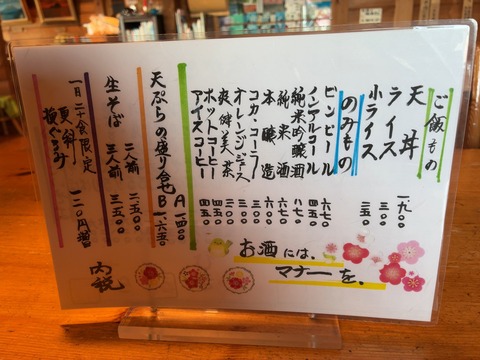 ご飯もの
天丼 一.九〇〇
ライス 三〇〇
小ライス 二五〇
のみもの
ビンビール 六七〇
ノンアルコール 四五〇
純米吟醸酒 八七〇
純米酒 六七〇
本醸造 六〇〇
コカ・コーラ 三〇〇
オレンジジュース 三〇〇
爽健美茶 三〇〇
ホットコーヒー 四五〇
アイスコーヒー 四五〇
天ぷらの盛り合せ A 一.四〇〇
B 一.六五〇
生そば 二人前 二.五〇〇
三人前 三.五〇〇
一日二十食限定
更科
挽ぐるみ 一二〇円増
お酒には、
マナーを、
内税